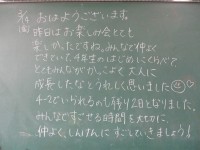 おはようございます。
昨日はお楽しみ会とても
楽しかったですね。みんなで仲よく
できていて、4年生のはじめにくらべて、
とてもみんながかっこよく大人に
成長したなとうれしく思いました
4-2でいられるのも残り2日となりました。
みんなですごせる時間を大切に、
仲よく、しんけんにすごしていきましょう!